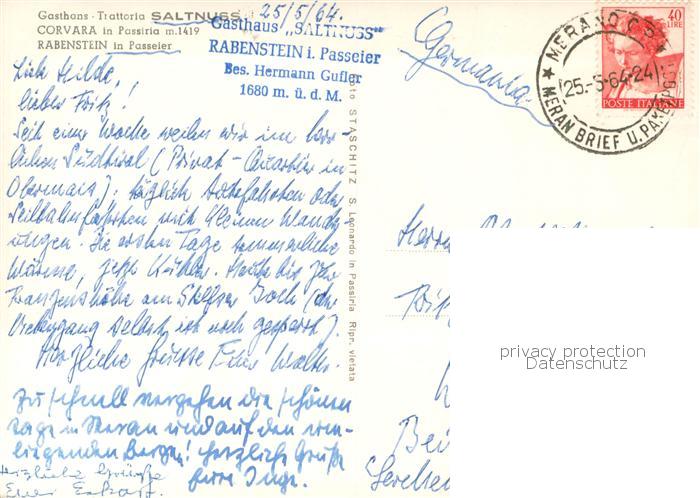 Gasthaus - Trattoria SALTNUSS
CORVARA in Passiria m.1419
RABENSTEIN in Passeier
25/5/64.
Gasthaus „SALTNUSS"
RABENSTEIN i. Passeier
Bes. Hermann Gufler
1680 m. ü. d. M.
Germania
40 LIRE
POSTE ITALIANE
MERANO C.P.
25.-5-64-24
MERAN BRIEF U. PAKETPOST
Liebe Hilde,
lieber Fritz!
Seit einer Woche weilen wir im herr-
lichen Südtirol (Privat-Quartier in
Obermais): täglich Autofahrten oder
Seilbahnfahrten mit kleinen Wande-
rungen. Die ersten Tage sommerliche
Wärme, jetzt kühler. Heute bis zur
Franzenshöhe am Stilfser Joch (der
Übergang selbst ist noch gesperrt).
Herzliche Grüsse Euer Walter.
Zu schnell vergehen die schönen
Tage in Meran und auf den um-
liegenden Bergen! Herzliche Grüße
Eure Inge.
Herzliche Grüße
Euer
Foto STASCHITZ S. Leonardo in Passiria Ripr. vietata
Herrn
Fritz
Bei
privacy protection
Datenschutz